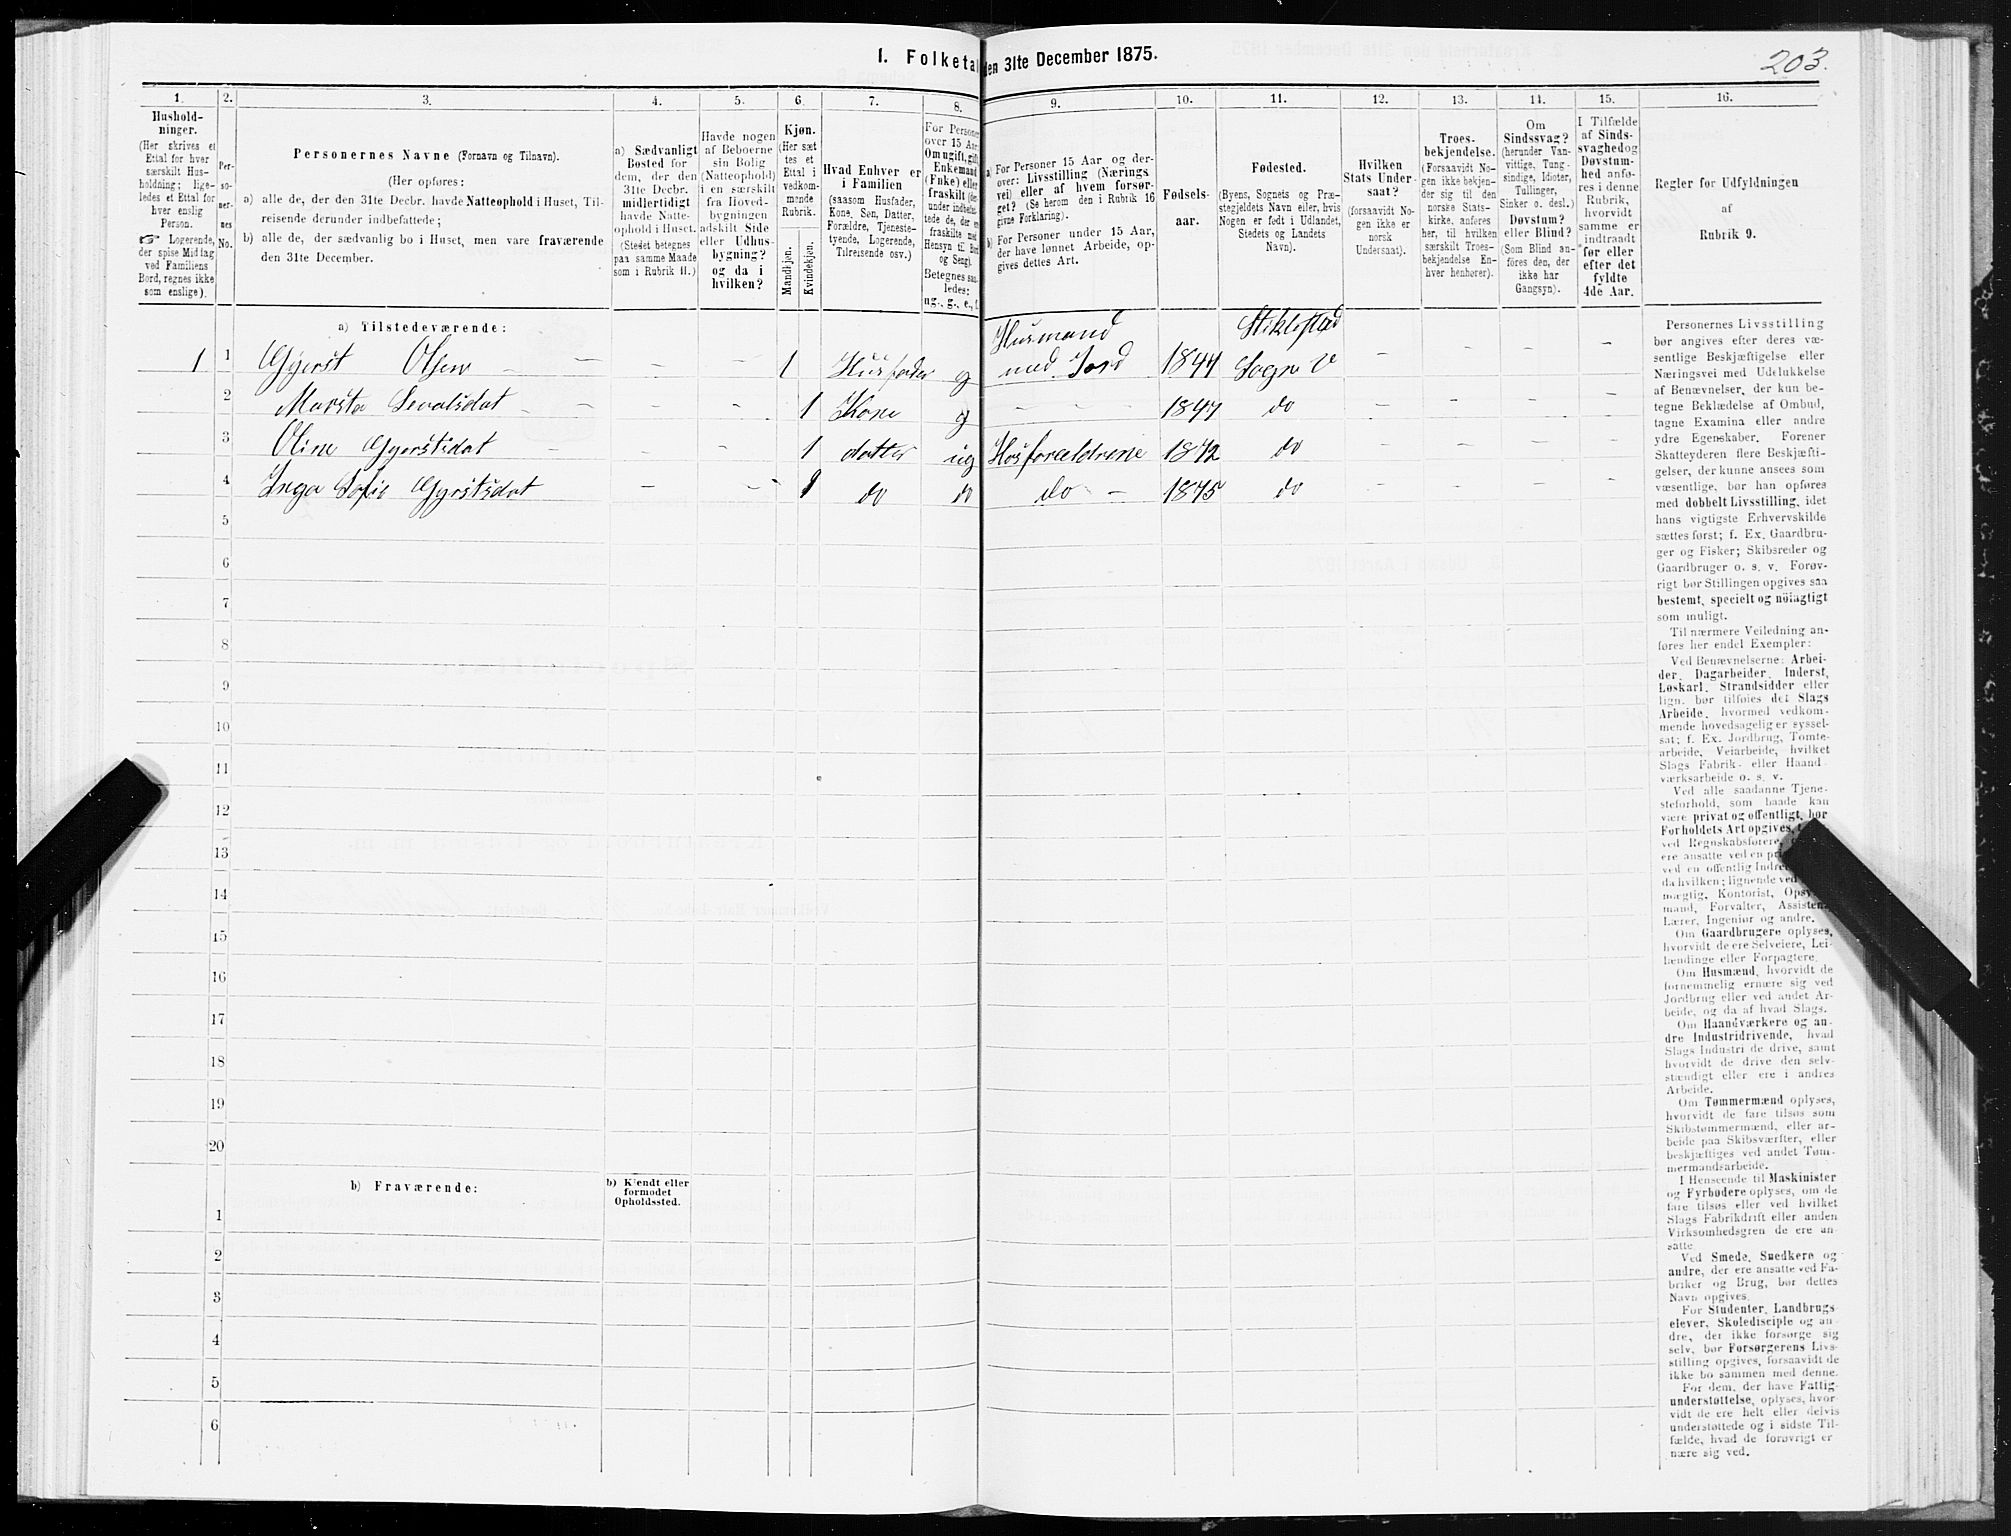 1. Folketal den 31te December 1875.
203.
1. 2. 3. 4. 5. 6. 7. 8. 9. 10. 11. 12. 13. 14. 15. 16.
Hushold-
ninger.
(Her skrives et
Ettal for hver
særskilt Hus-
holdning; lige-
ledes et Ettal for
hver enslig
Person.
☞ Logerende,
der spise Middag
ved Familiens
Bord, regnes ikke
som enslige).
Per-
so-
ner-
nes
No.
Personernes Navne (Fornavn og Tilnavn).
(Her opføres:
a) alle de, der den 31te Decbr. havde Natteophold i Huset, Til-
reisende derunder indbefattede;
b) alle de, der sædvanlig bo i Huset, men vare fraværende
den 31te December.
a) Sædvanligt
Bosted for
dem, der den
31te Decbr.
midlertidigt
havde Natte-
ophold i Huset.
(Stedet betegnes
paa samme Maade
som i Rubrik 11.)
Havde nogen
af Beboerne
sin Bolig
(Natteophold)
i en særskilt
fra Hoved-
bygningen
adskilt Side
eller Udhus-
bygning?
og da i
hvilken?
Kjøn.
(Her sæt
tes et
Ettal i
vedkom-
mende
Rubrik.
Mandkjøn.
Kvindekjøn.
Hvad Enhver er
i Familien
(saasom Husfader,
Kone, Søn, Datter,
Forældre, Tjeneste-
tyende, Logerende,
Tilreisende osv.)
For Personer
over 15 Aar:
Om ugift, gift,
Enkemand
(Enke) eller
fraskilt (der-
under indbefat-
tede de, der ere
fraskilte med
Hensyn til Bord
og Seng).
Betegnes saa-
ledes:
ug., g., e., f.
a) For Personer 15 Aar og der-
over: Livsstilling (Nærings-
vei) eller af hvem forsør-
get? (Se herom den i Rubrik 16
givne Forklaring).
b) For Personer under 15 Aar,
der have lønnet Arbeide, op-
gives dettes Art.
Fødsels-
aar.
Fødested.
(Byens, Sognets og Præ-
stegjeldets Navn eller, hvis
Nogen er født i Udlandet,
Stedets og Landets
Navn).
Hvilken
Stats Under-
saat?
(forsaavidt No-
gen ikke er
norsk
Undersaat).
Troes-
bekjendelse.
(Forsaavidt No-
gen ikke bekjen-
der sig til den
norske Stats-
kirke, anføres
her, til hvilken
særskilt Troes-
bekjendelse En-
hver henhører).
Om
Sindssvag?
(herunder Van-
vittige, Tung-
sindige, Idioter,
Tullinger,
Sinker o. desl.)
Døvstum?
eller Blind?
(Som Blind an-
føres den, der
ikke har
Gangsyn).
I Tilfælde
af Sinds-
svaghed og
Døvstum-
hed anfø-
res i denne
Rubrik,
hvorvidt
samme er
indtraadt
før eller
efter det
fyldte
4de Aar.
Regler for Udfyldningen
af
Rubrik 9.
a) Tilstedeværende:
Husmand Stiklestad
1 1 Gjerst Olsen - - - 1 Husfader g med Jord 1844 Sogn V - - - -
2 Marsta Sevalsdat - - - 1 Kone g - - - 1847 do - - - -
3 Oline Gjerstsdat - - 1 datter ug Hos forældrene 1872 do - - -
4 Inga Sofie Gjerstsdat - - 1 do do do - 1875 do - - -
5
6
7
8
9
10
11
12
13
14
15
16
17
18
19
20
b) Fraværende:
b) Kjendt eller
formodet
Opholdssted.
1
2
3
4
5
6
Personernes Livsstilling
bør angives efter deres væ-
sentlige Beskjæftigelse eller
Næringsvei med Udelukkelse
af Benævnelser, der kun be-
tegne Beklædelse af Ombud,
tagne Examina eller andre
ydre Egenskaber. Forener
Skatteyderen flere Beskjæfti-
gelser, der kunne ansees som
væsentlige, bør han opføres
med dobbelt Livsstilling, idet
hans vigtigste Erhvervskilde
sættes først; f. Ex. Gaardbru-
ger og Fisker; Skibsreder og
Gaardbruger o. s. v. Forøv-
rigt bør Stillingen opgives saa
bestemt, specielt og nøiagtigt
som muligt.
Til nærmere Veiledning an-
føres her endel Exempler:
Ved Benævnelserne: Arbei-
der, Dagarbeider, Inderst,
Løskarl, Strandsidder eller
lign. bør tilføies det Slags
Arbeide, hvormed vedkom-
mende hovedsagelig er syssel-
sat; f. Ex. Jordbrug, Tomte-
arbeide, Veiarbeide, hvilket
Slags Fabrik- eller Haand-
værksarbeide o. s. v.
Ved alle saadanne Tjene-
steforhold, som baade kan
være privat og offentligt, bør
Forholdets Art opgives,
ved Regnskabsførere,
ere ansatte ved en
ved en offentlig
da hvilken; lignende ved
mægtig, Kontorist,
mand, Forvalter,
Lærer, Ingeniør og andre.
Om Gaardbrugere oplyses,
hvorvidt de ere Selveiere, Lei-
lændinge eller Forpagtere.
Om Husmænd, hvorvidt de
fornemmelig ernære sig ved
Jordbrug eller ved andet Ar-
beide, og da af hvad Slags.
Om Haandværkere og an-
dre Industridrivende, hvad
Slags Industri de drive, samt
hvorvidt de drive den selv-
stændigt eller ere i andres
Arbeide.
Om Tømmermænd oplyses,
hvorvidt de fare tilsøs som
Skibstømmermænd, eller ar-
beide paa Skibsværfter, eller
beskjæftiges ved andet Tøm-
mermandsarbeide.
I Henseende til Maskinister
og Fyrbødere oplyses, om de
fare tilsøs eller ved hvilket
Slags Fabrikdrift eller anden
Virksomhedsgren de ere an-
satte
Ved Smede, Snedkere og
andre, der ere ansatte ved Fa-
briker og Brug, bør dettes
Navn opgives.
For Studenter, Landbrugs-
elever, Skoledisciple og an-
dre, der ikke forsørge sig
selv, bør Forsørgerens Livs-
stilling opgives, forsaavidt de
ikke bo sammen med denne.
For dem, der have Fattig-
understøttelse, oplyses, hvor-
vidt de ere helt eller delvis
understøttede og i sidste Til-
fælde, hvad de forøvrigt er
nære sig ved.